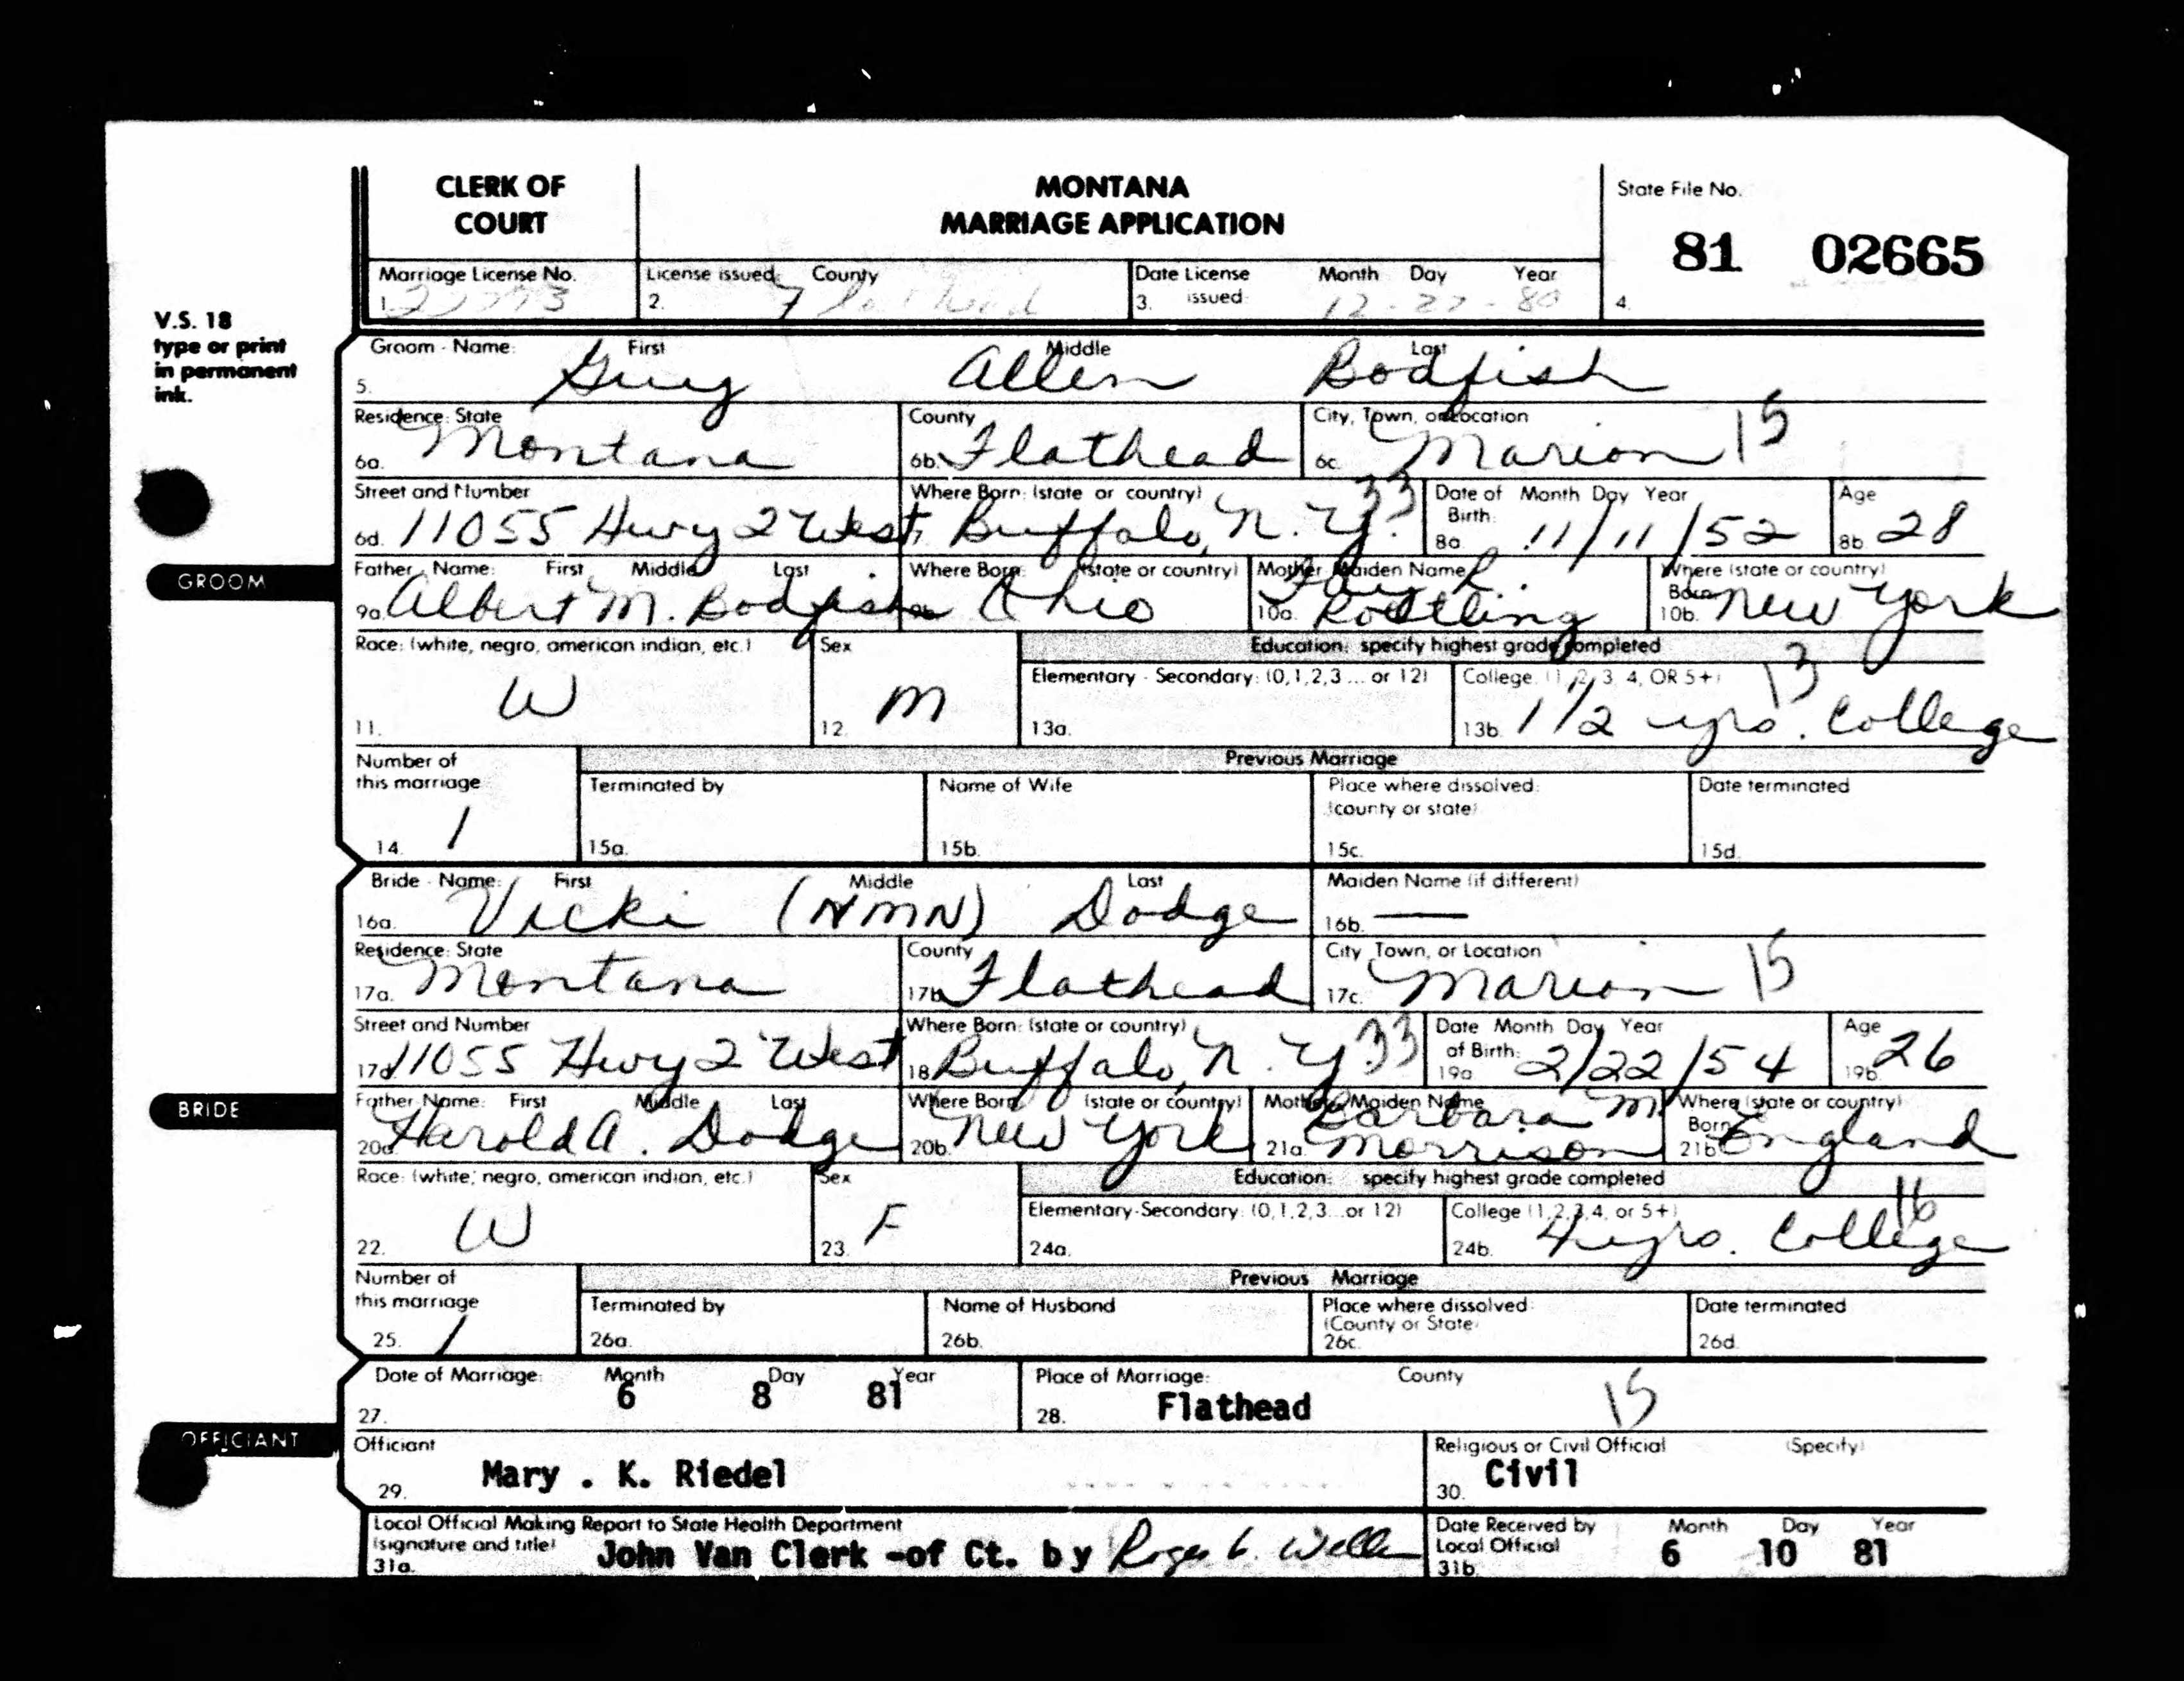 CLERK OF COURT
MONTANA
MARRIAGE APPLICATION
State File No.
81 02665
4.
Marriage License No.
1.
License issued: County
2. Flathead
Date License issued: Month Day Year
3. 12-22-80
V.S. 18
type or print
in permanent
ink.
GROOM
Groom - Name: First Middle Last
5. Guy Allen Bodfish
Residence: State County City, Town, or Location
6a. Montana 6b. Flathead 6c. Marion 15
Street and Number Where Born: (state or country) Date of Birth: Month Day Year Age
6d. 11055 Hwy 2 West 7. Buffalo, N.Y. 33 8a. 11/11/52 8b. 28
Father Name: First Middle Last Where Born: (state or country) Mother Maiden Name Where Born (state or country)
9a. Albert M. Bodfish 9b. Ohio 10a. R. 10b. New York
Race: (white, negro, american indian, etc.) Sex Education: specify highest grade completed
Elementary - Secondary: (0,1,2,3 ... or 12) College: (1, 2, 3, 4, OR 5+) 13
11. W 12. M 13a. 13b. 1 1/2 yrs. College
Number of this marriage Previous Marriage
Terminated by Name of Wife Place where dissolved: (county or state) Date terminated
14. 1 15a. 15b. 15c. 15d.
BRIDE
Bride - Name: First Middle Last Maiden Name (if different)
16a. Vicki (NMN) Dodge 16b. —
Residence: State County City, Town, or Location
17a. Montana 17b. Flathead 17c. Marion 15
Street and Number Where Born: (state or country) Date of Birth: Month Day Year Age
17d. 11055 Hwy 2 West 18. Buffalo, N.Y. 33 19a. 2/22/54 19b. 26
Father Name: First Middle Last Where Born (state or country) Mother Maiden Name Where Born (state or country)
20a. Harold A. Dodge 20b. New York 21a. Barbara M. Morrison 21b. England
Race: (white, negro, american indian, etc.) Sex Education: specify highest grade completed
Elementary-Secondary: (0,1,2,3...or 12) College (1,2,3,4, or 5+) 16
22. W 23. F 24a. 24b. 4 yrs. College
Number of this marriage Previous Marriage
Terminated by Name of Husband Place where dissolved: (County or State) Date terminated
25. 1 26a. 26b. 26c. 26d.
OFFICIANT
Date of Marriage: Month Day Year Place of Marriage: County
27. 6 8 81 28. Flathead 15
Officiant Religious or Civil Official (Specify)
29. Mary . K. Riedel 30. Civil
Local Official Making Report to State Health Department (signature and title) Date Received by Local Official Month Day Year
31a. John Van Clerk -of Ct. by Roger 31b. 6 10 81